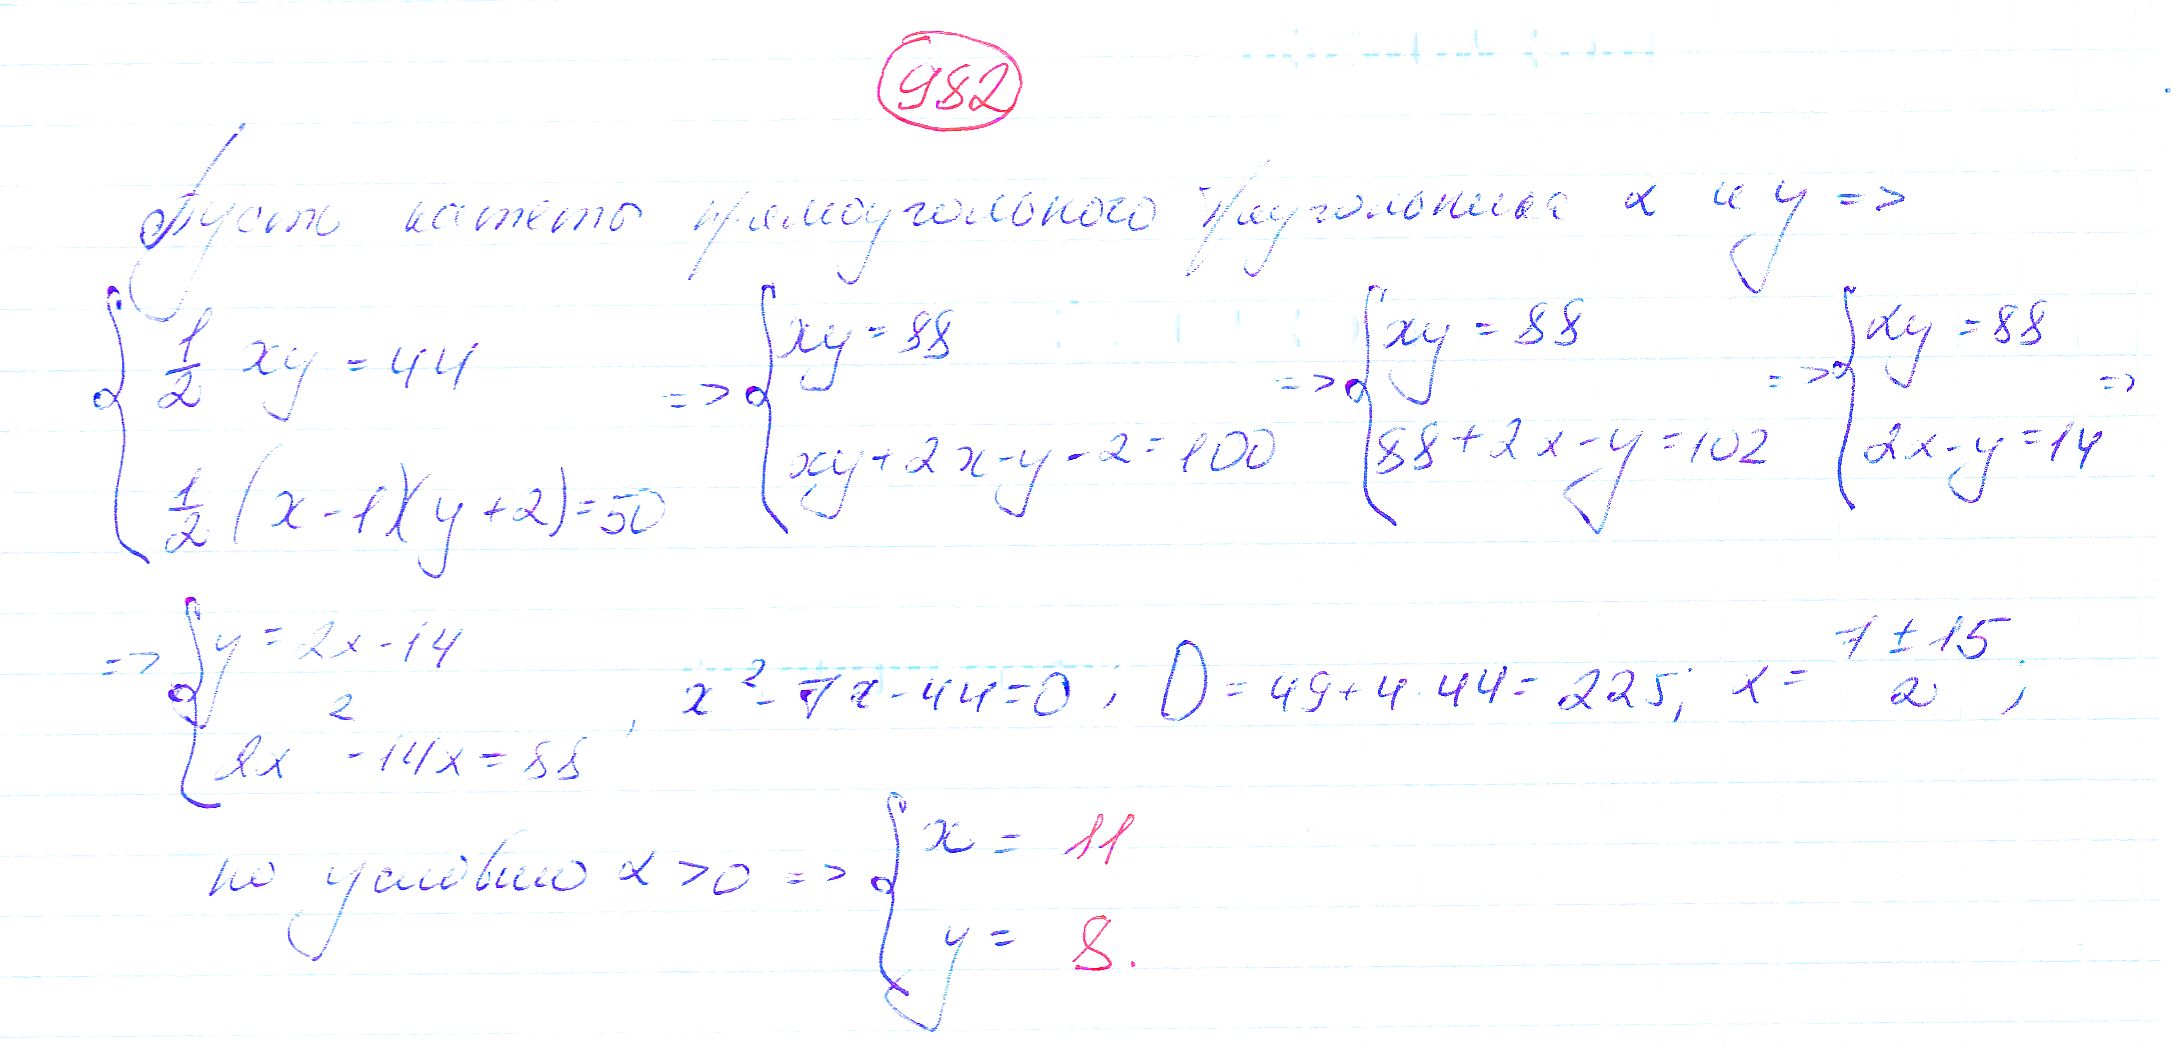 982
Пусть катеты прямоугольного треугольника x и y =>
{ 1/2 xy = 44 => { xy = 88 => { xy = 88 => { xy = 88 =>
1/2 (x - 1)(y + 2) = 50 xy + 2x - y - 2 = 100 88 + 2x - y = 102 2x - y = 14
=> { y = 2x - 14
2x² - 14x = 88 , x² - 7x - 44 = 0 , D = 49 + 4·44 = 225; x = (7 ± 15)/2 ;
по условию x > 0 => { x = 11
y = 8.